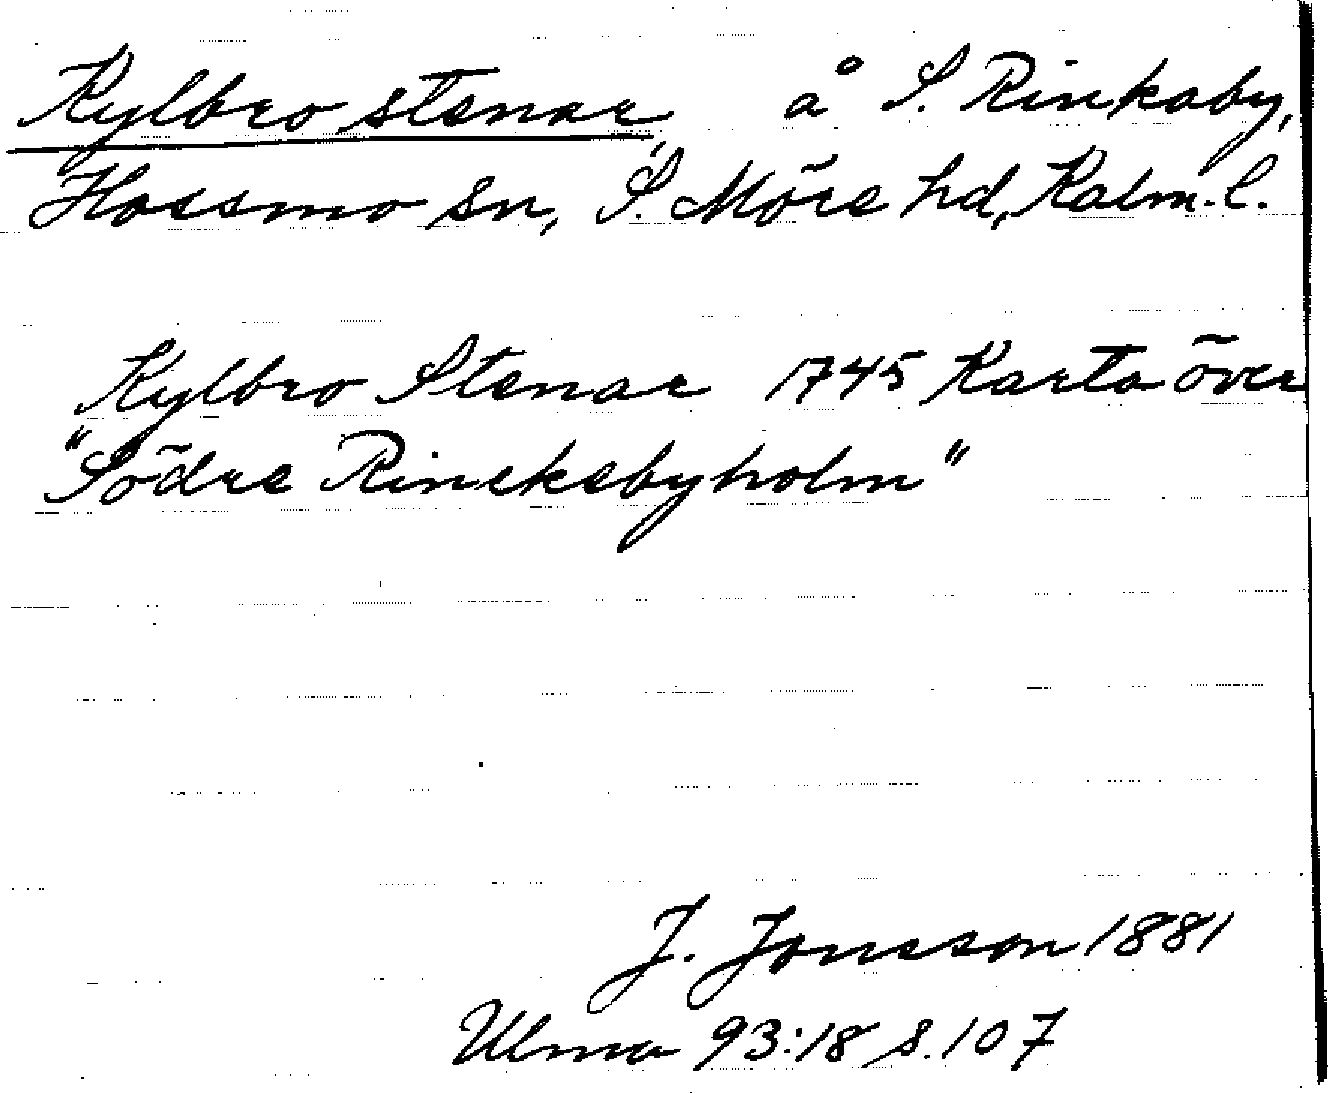 Kylbro stenar, å S. Rinkaby,
Hossmo sn, S. Möre hd, Kalm. l.
Kylbro Stenar 1745 Karta över
"Södre Rinckebyholm"
J. Jonsson 1881
Ulma 93:18 s. 107